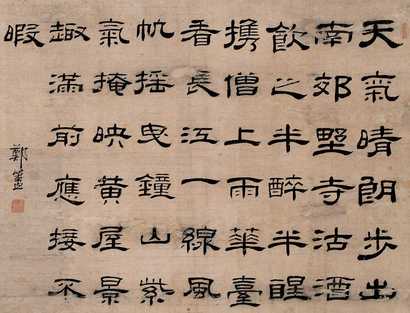 天氣晴朗步出
南郊野寺沽酒
飲之半醉半醒
攜僧上雨華臺
看長江一線風
帆搖曳鐘山紫
氣掩映黃屋景
趣滿前應接不
暇
鄭簠